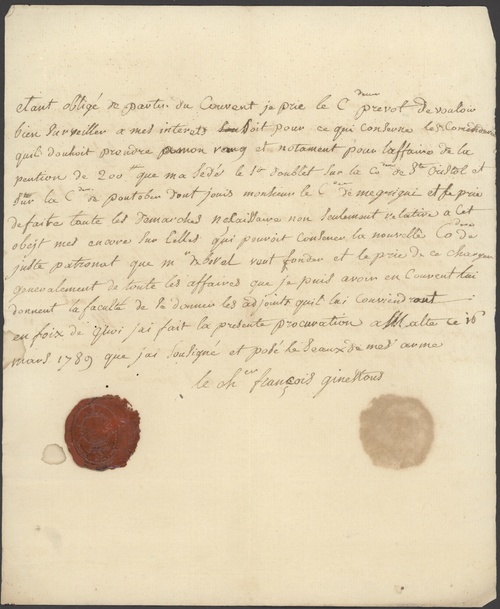 etant obligé de partir du Couvent je prie le C deur prevot de vouloir
bien surveiller a mes interets soit pour ce qui conserne les
quil doivoit prendre mon rang et notament pour l'affaire de la
pention de 200 que ma sedé le 1er doublet sur la Com de Ste et
sur la C deur de pontobert dont jouis monsieur le C deur de mesgrigni et je prie
de faire toute les demarches nesaissaire non seulement relative a cet
objet mes encore sur celles qui pouroit conserner la nouvelle Co deur de
juste patronat que mr vent fonder et le prie de ce charger
generalement de toute les affaires que je puis avoir en Couvent lui
donnent la faculte de se donner les adjoints quil lui conviendront
en foix de quoi j'ai fait la presente procuration a Malte ce 16
mars 1789 que j'ai soussigné et posé le seaux de mes arme
le cher françois ginestous